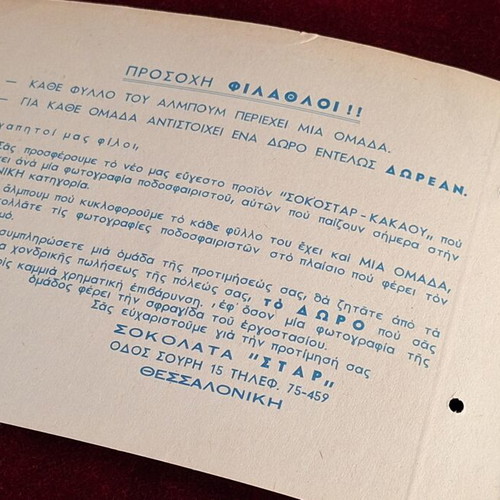 ΠΡΟΣΟΧΗ ΦΙΛΑΘΛΟΙ!!
— ΚΑΘΕ ΦΥΛΛΟ ΤΟΥ ΑΛΜΠΟΥΜ ΠΕΡΙΕΧΕΙ ΜΙΑ ΟΜΑΔΑ.
— ΓΙΑ ΚΑΘΕ ΟΜΑΔΑ ΑΝΤΙΣΤΟΙΧΕΙ ΕΝΑ ΔΩΡΟ ΕΝΤΕΛΩΣ ΔΩΡΕΑΝ.
μας φίλοι,
Σάς προσφέρουμε τό νέο μας εύγεστο προϊόν "ΣΟΚΟΣΤΑΡ - ΚΑΚΑΟΥ„ πού
άνά μία φωτογραφία ποδοσφαιριστού, αύτών πού παίζουν σήμερα στήν
κατηγορία.
άλμπουμ πού κυκλοφορούμε τό κάθε φύλλο του έχει καί ΜΙΑ ΟΜΑΔΑ,
τίς φωτογραφίες ποδοσφαιριστών στό πλαίσιο πού φέρει τόν
συμπληρώσετε μιά όμάδα τής προτιμήσεώς σας, θά ζητάτε άπό τά
χονδρικής πωλήσεως τής πόλεώς σας, τό ΔΩΡΟ πού σάς
καμμιά χρηματική έπιβάρυνση. έφ' όσον μία φωτογραφία τής
όμάδος φέρει τήν σφραγίδα τού έργοστασίου.
Σάς εύχαριστούμε γιά τήν προτίμησή σας
ΣΟΚΟΛΑΤΑ "ΣΤΑΡ„
ΟΔΟΣ ΣΟΥΡΗ 15 ΤΗΛΕΦ. 75-459
ΘΕΣΣΑΛΟΝΙΚΗ